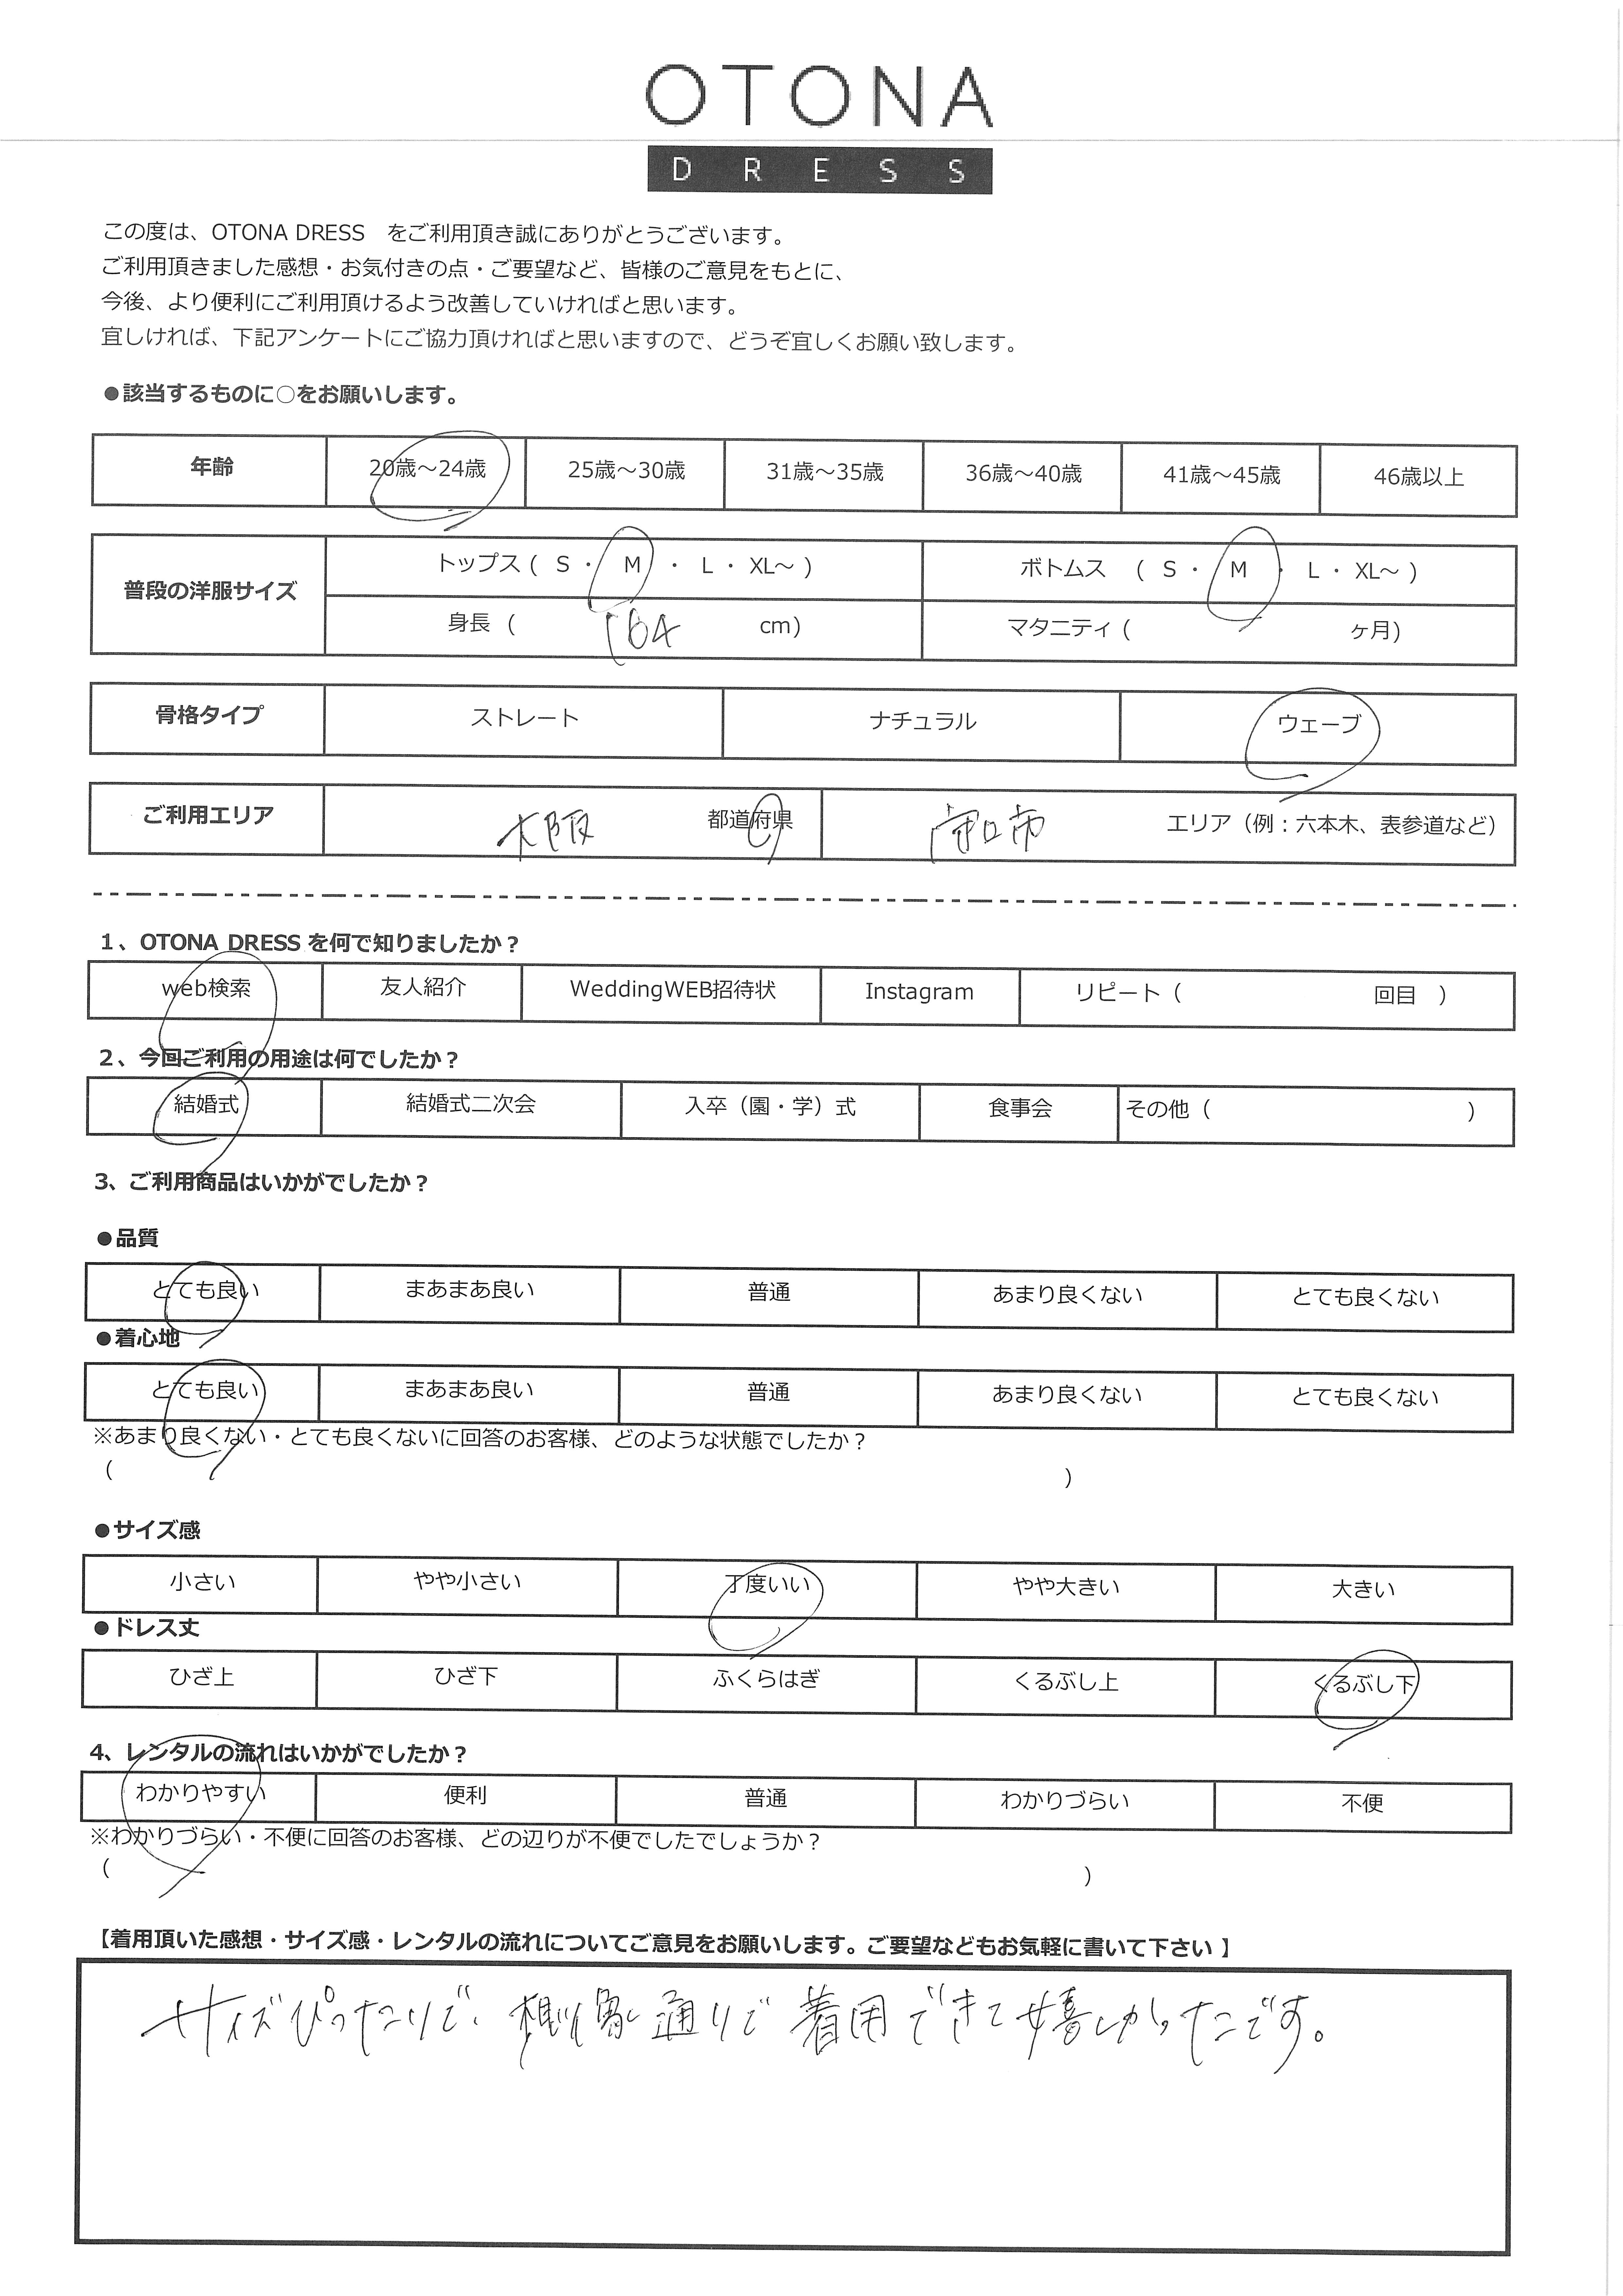 OTONA
DRESS
この度は、OTONA DRESS　をご利用頂き誠にありがとうございます。
ご利用頂きました感想・お気付きの点・ご要望など、皆様のご意見をもとに、
今後、より便利にご利用頂けるよう改善していければと思います。
宜しければ、下記アンケートにご協力頂ければと思いますので、どうぞ宜しくお願い致します。
●該当するものに○をお願いします。
年齢 20歳～24歳 25歳～30歳 31歳～35歳 36歳～40歳 41歳～45歳 46歳以上
普段の洋服サイズ トップス ( S ・ M ・ L ・ XL～ ) ボトムス ( S ・ M ・ L ・ XL～ )
身長 ( 164 cm) マタニティ ( ヶ月)
骨格タイプ ストレート ナチュラル ウェーブ
ご利用エリア 大阪 都道府県 守口市 エリア（例：六本木、表参道など）
1、OTONA DRESS を何で知りましたか？
web検索 友人紹介 WeddingWEB招待状 Instagram リピート（ 回目 ）
2、今回ご利用の用途は何でしたか？
結婚式 結婚式二次会 入卒（園・学）式 食事会 その他（ ）
3、ご利用商品はいかがでしたか？
●品質
とても良い まあまあ良い 普通 あまり良くない とても良くない
●着心地
とても良い まあまあ良い 普通 あまり良くない とても良くない
※あまり良くない・とても良くないに回答のお客様、どのような状態でしたか？
( )
●サイズ感
小さい やや小さい 丁度いい やや大きい 大きい
●ドレス丈
ひざ上 ひざ下 ふくらはぎ くるぶし上 くるぶし下
4、レンタルの流れはいかがでしたか？
わかりやすい 便利 普通 わかりづらい 不便
※わかりづらい・不便に回答のお客様、どの辺りが不便でしたでしょうか？
( )
【着用頂いた感想・サイズ感・レンタルの流れについてご意見をお願いします。ご要望などもお気軽に書いて下さい 】
サイズぴったりで、想像通りで着用できて嬉しかったです。